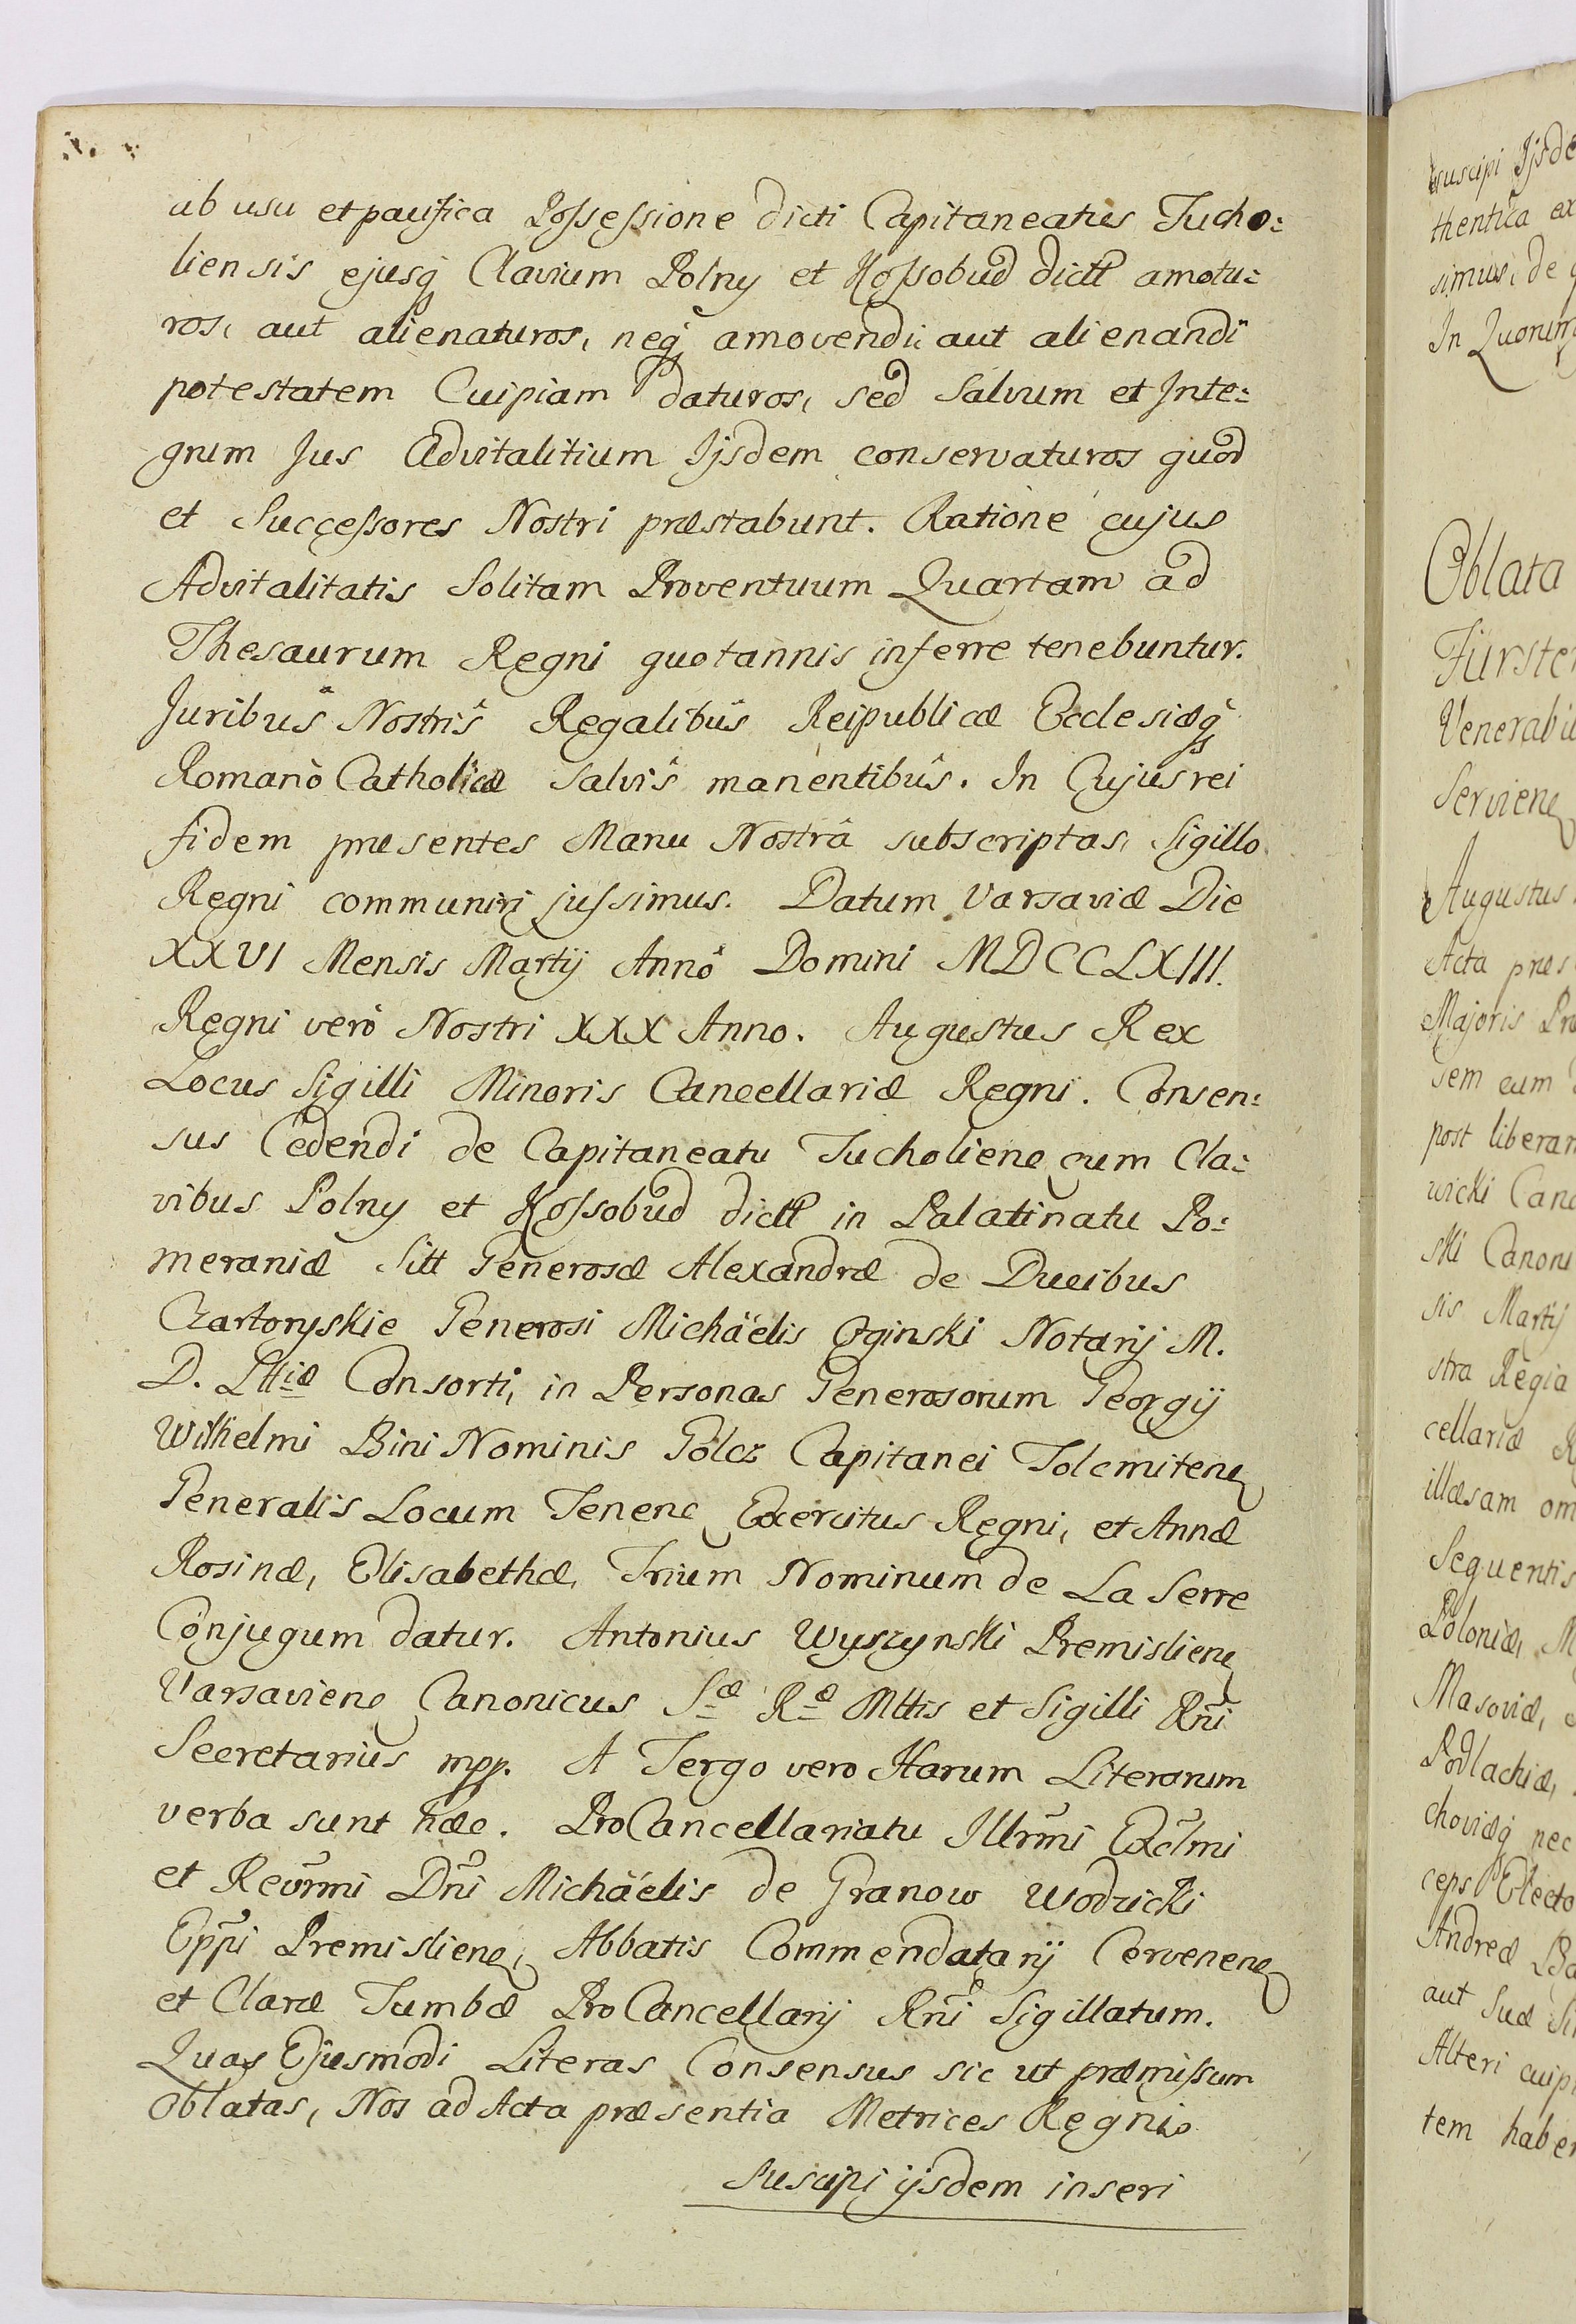 ab usu et pacifica Possessione dicti Capitaneatus Tucho:
liensis ejusq Clavium Polny et Kossobud dictt amotu:
ros, aut alienaturos, neq amovendi aut alienandi
potestatem Cuipiam daturos, sed Salvum et Inte:
grum Jus Advitalitium Ijsdem conservaturos quod
et Successores Nostri præstabunt. Ratione cujus
Advitalitatis Solitam Proventuum Quartam ad
Thesaurum Regni quotannis inferre tenebuntur.
Juribus Nostris Regalibus Reipublicæ Ecclesiæq
Romano Catholicæ Salvis manentibus. In Cujus rei
fidem præsentes Manu Nostrâ subscriptas, Sigillo
Regni communiri jussimus. Datum Varsaviæ Die
XXVI Mensis Martij Annô Domini MDCCLXIII.
Regni verò Nostri XXX Anno. Augustus Rex
Locus Sigilli Minoris Cancellariæ Regni. Consen:
sus Cedendi de Capitaneatu Tucholiens cum Cla:
vibus Polny et Kossobud dictt in Palatinatu Po:
meraniæ Sitt Generosæ Alexandræ de Ducibus
Czartoryskie Generosi Michäelis Oginski Notarij M.
D. Lttiæ Consorti, in Personas Generosorum Georgij
Wilhelmi Bini Nominis Golcz Capitanei Tolcmitens
Generalis Locum Tenens Exercitus Regni, et Annæ
Rosinæ, Elisabethæ, Trium Nominum de La Serre
Conjugum datur. Antonius Wyszynski Premisliens
Varsaviens Canonicus Sæ Ræ Mttis et Sigilli Rñi
Secretarius mpp. A Tergo vero Harum Literarum
verba sunt hæc. ProCancellariatu Illrmi Exclmi
et Revrmi Dñi Michäelis de Granow Wodzicki
Eppi Premisliens, Abbatis Commendatarij Cervenens
et Claræ Tumbæ ProCancellarij Rñi Sigillatum.
Quas Ejusmodi Literas Consensus sic ut præmissum
Oblatas, Nos ad Acta præsentia Metrices Regni
suscipi ijsdem inseri
suscipi Ijsde
thentica ex
simus, de
In Quorum
Oblata
Fürste
Venerabi
Serviens
Augustus
Acta præs
Majoris Pr
sem cum
post liberam
wicki Can
ski Canoni
sis Martij
stra Regia
cellariæ R
illæsam om
Sequentis
Poloniæ, M
Masoviæ,
Podlachiæ,
choviæq nec
ceps Electo
Andreæ Ba
aut Suæ Si
Alteri cuipi
tem haber